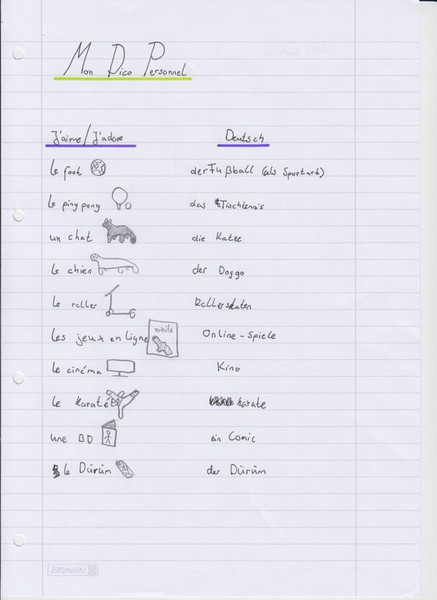 Mon Dico Personnel
J'aime/J'adore Deutsch
le foot der Fußball (als Sportart)
le ping pong das Tischtennis
un chat die Katze
le chien der Doggo
le roller Rollerskaten
les jeux en ligne Online-Spiele
le cinéma Kino
le Karaté karate
une BD ein Comic
le Dürüm der Dürüm
BRUNNEN